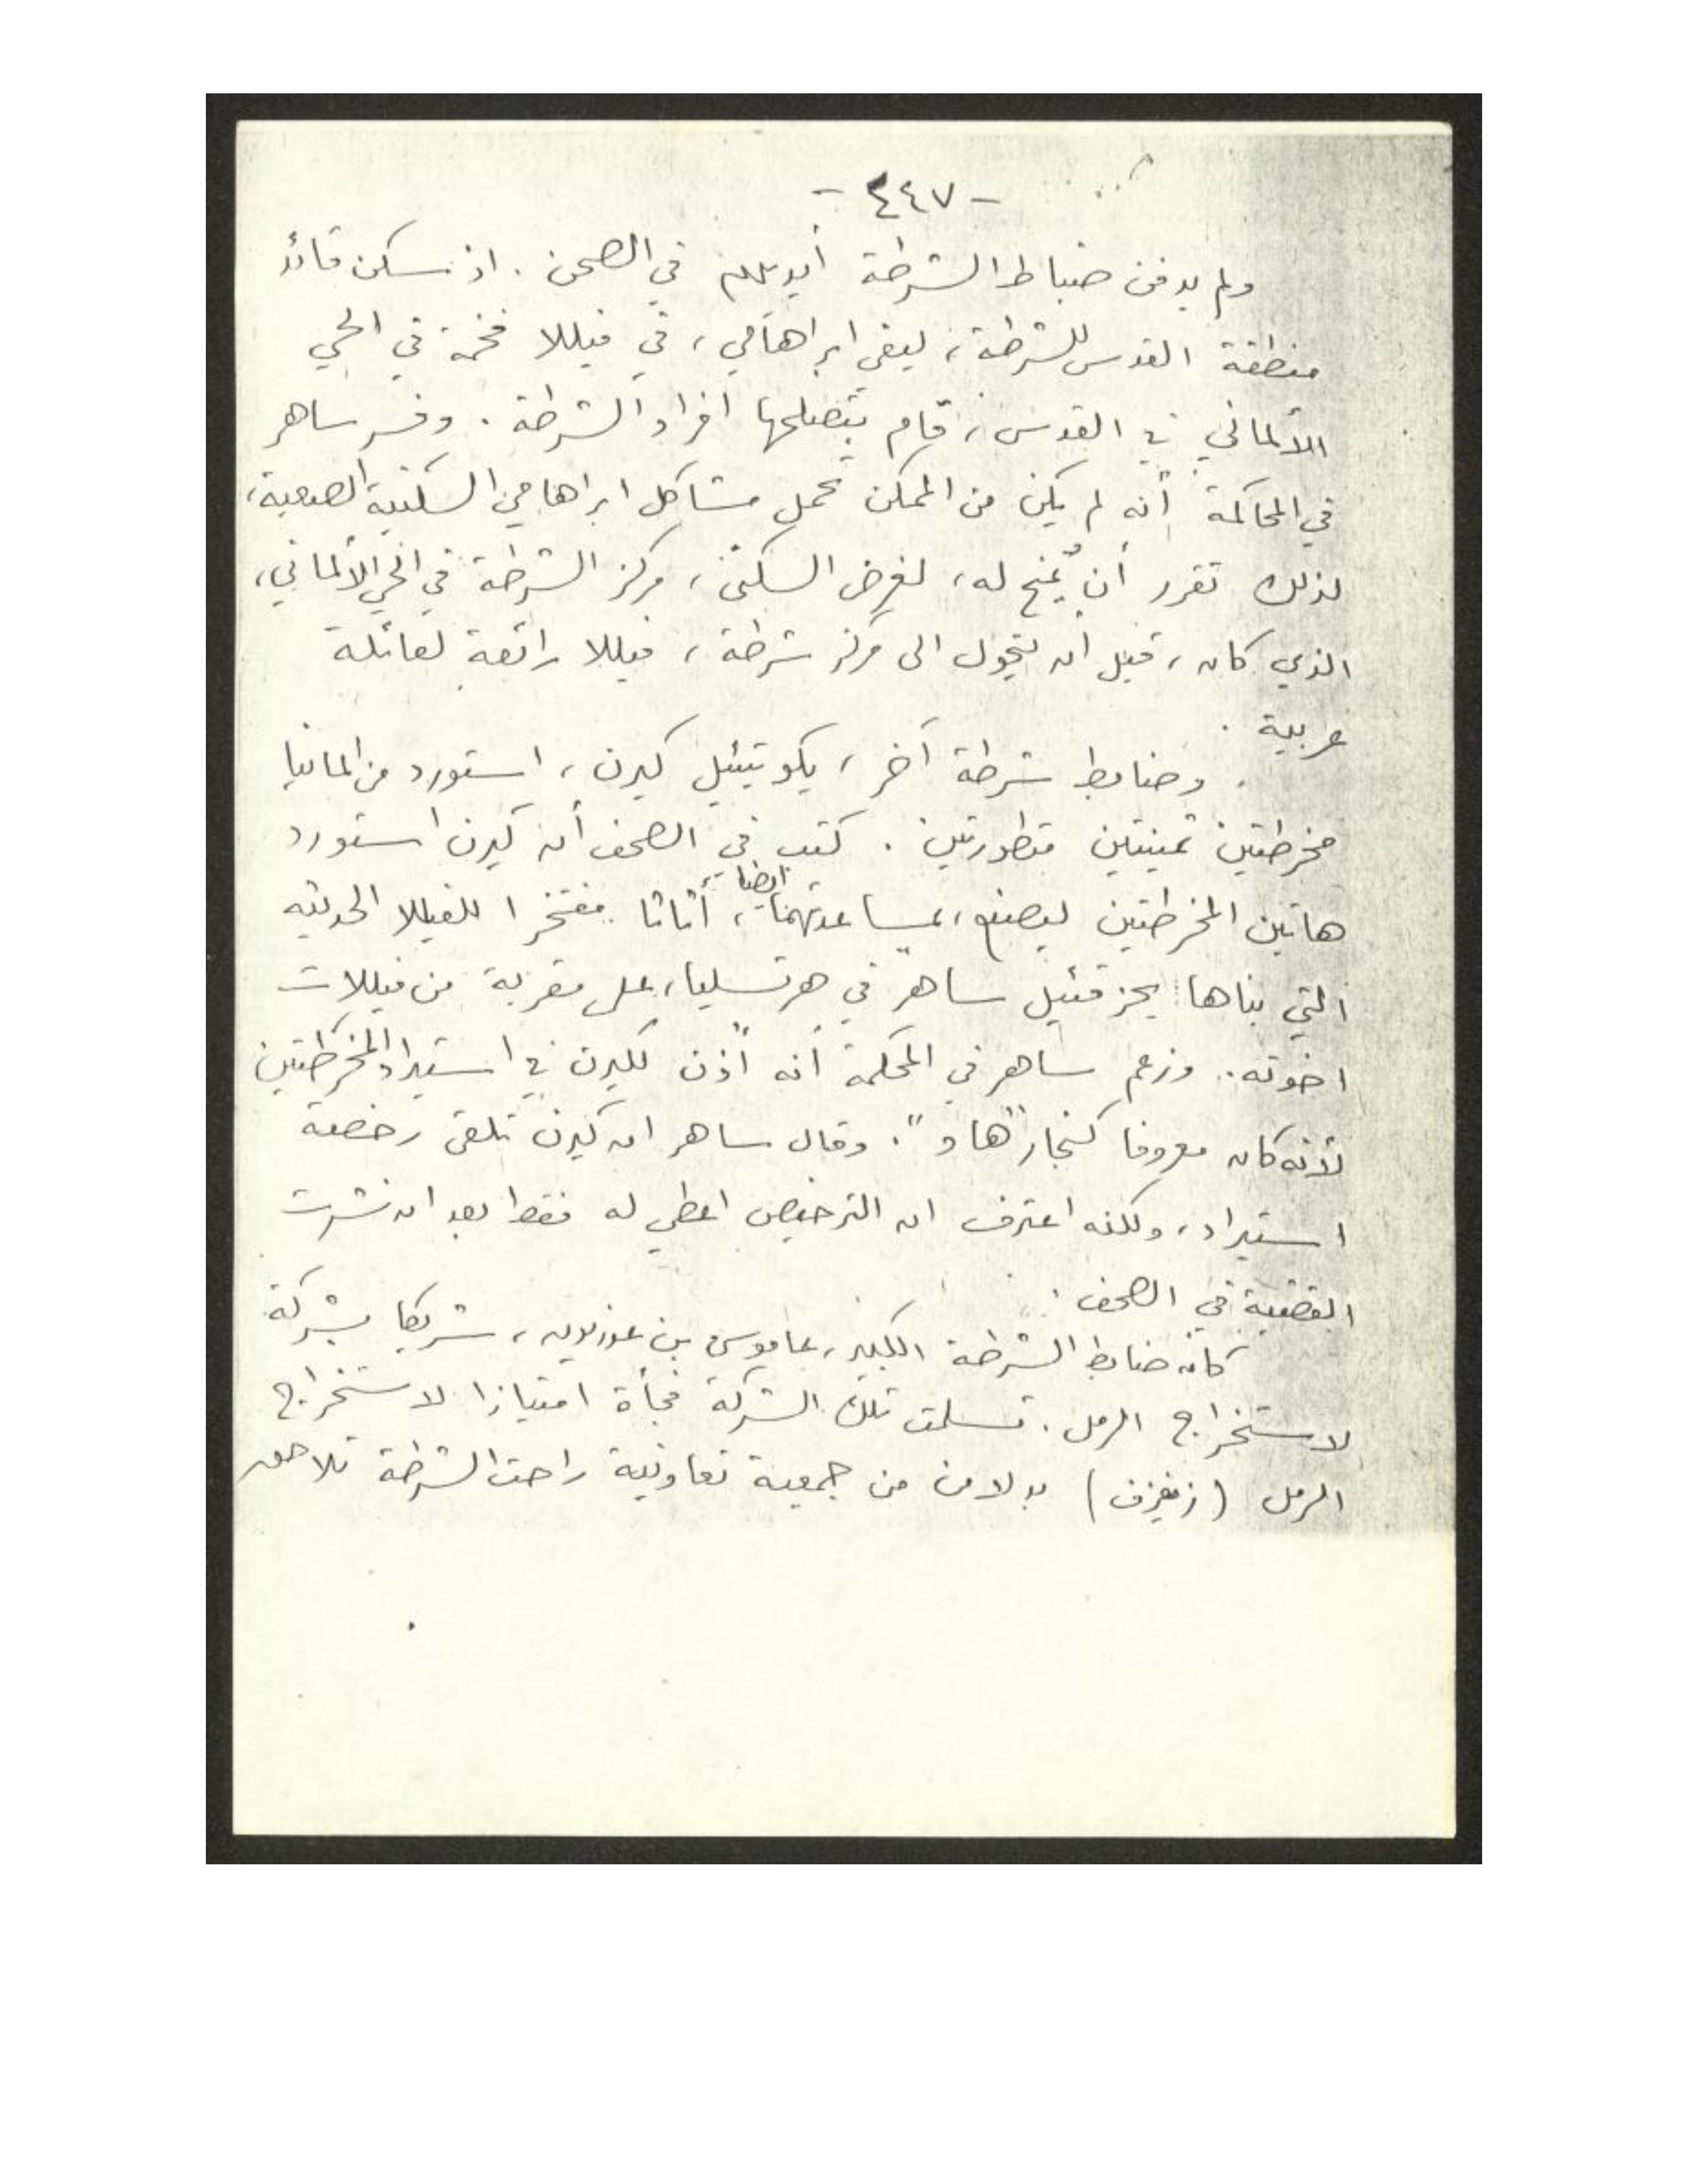 - ٤٤٧ -
ولم يدفن ضباط الشرطة أيديهم في الصحن . اذ سكن قائد
منطقة القدس للشرطة ، ليفي ابراهامي ، في فيللا فخمة في الحي
الألماني في القدس ، قام بتصليحها افراد الشرطة . وفسر ساهر
في المحاكمة أنه لم يكن من الممكن تحمل مشاكل ابراهامي السكنية الصعبة ،
لذلك تقرر أن يُمنح له ، لغرض السكنى ، مركز الشرطة في الحي الألماني ،
الذي كان ، قبل ان يتحول الى مركز شرطة ، فيللا رائعة لعائلة
عربية .
وضابط شرطة آخر ، يكوتيئيل كيرن ، استورد من المانيا
مخرطتين ثمينتين متطورتين . كتب في الصحف أن كيرن استورد
هاتين المخرطتين ليصنع ، بمساعدتهما ايضا ، أثاثا مفتخرا للفيللا الحديثه
التي بناها يحزقئيل ساهر في هرتسليا ، على مقربة من فيللات
اخوته . وزعم ساهر في المحكمة أنه أذن لكيرن في استيراد المخرطتين
لأنه كان معروفا كنجار "هاو" . وقال ساهر ان كيرن تلقى رخصة
استيراد ، ولكنه اعترف ان الترخيص اعطي له فقط بعد ان نشرت
القضية في الصحف .
كان ضابط الشرطة الكبير ، عاموس بن غوريون ، شريكا بشركة
لاستخراج الرمل . تسلمت تلك الشركة فجأة امتيازا لاستخراج
الرمل ( زفزيف ) بدلا من من جمعية تعاونية راحت الشرطة تلاحق